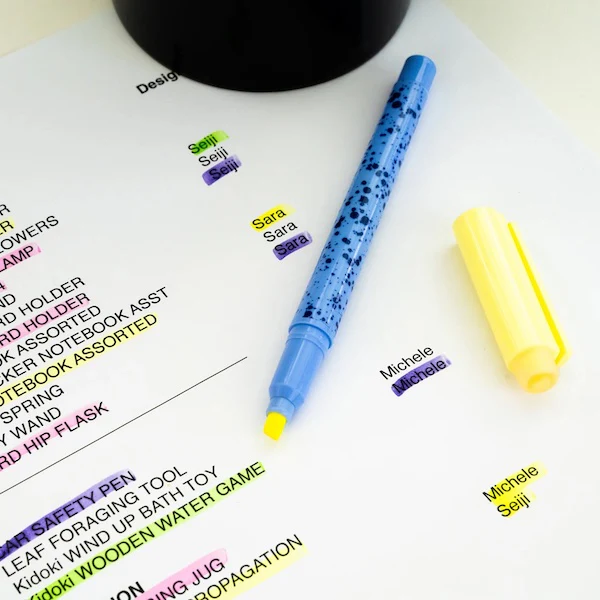 Desig
Seiji
Seiji
Seiji
Sara
Sara
Sara
LOWERS
LAMP
RD HOLDER
RD HOLDER
OK ASSORTED
CKER NOTEBOOK ASST
OTEBOOK ASSORTED
SPRING
Y WAND
RD HIP FLASK
Michele
Michele
Michele
Seiji
CAR SAFETY PEN
LEAF FORAGING TOOL
Kidoki WIND UP BATH TOY
Kidoki WOODEN WATER GAME
ION
ING JUG
ROPAGATION